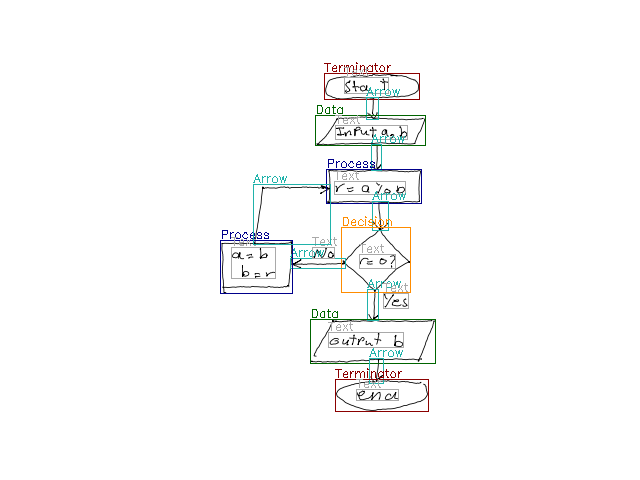 Terminator
Text
Start
Arrow
Data
Text
Input a, b
Arrow
Process
Text
r = a % b
Arrow
Arrow
Process
Text
a = b
b = r
Decision
Text
r = 0?
Text
No
Arrow
Arrow
Text
Yes
Data
Text
output b
Arrow
Terminator
Text
end